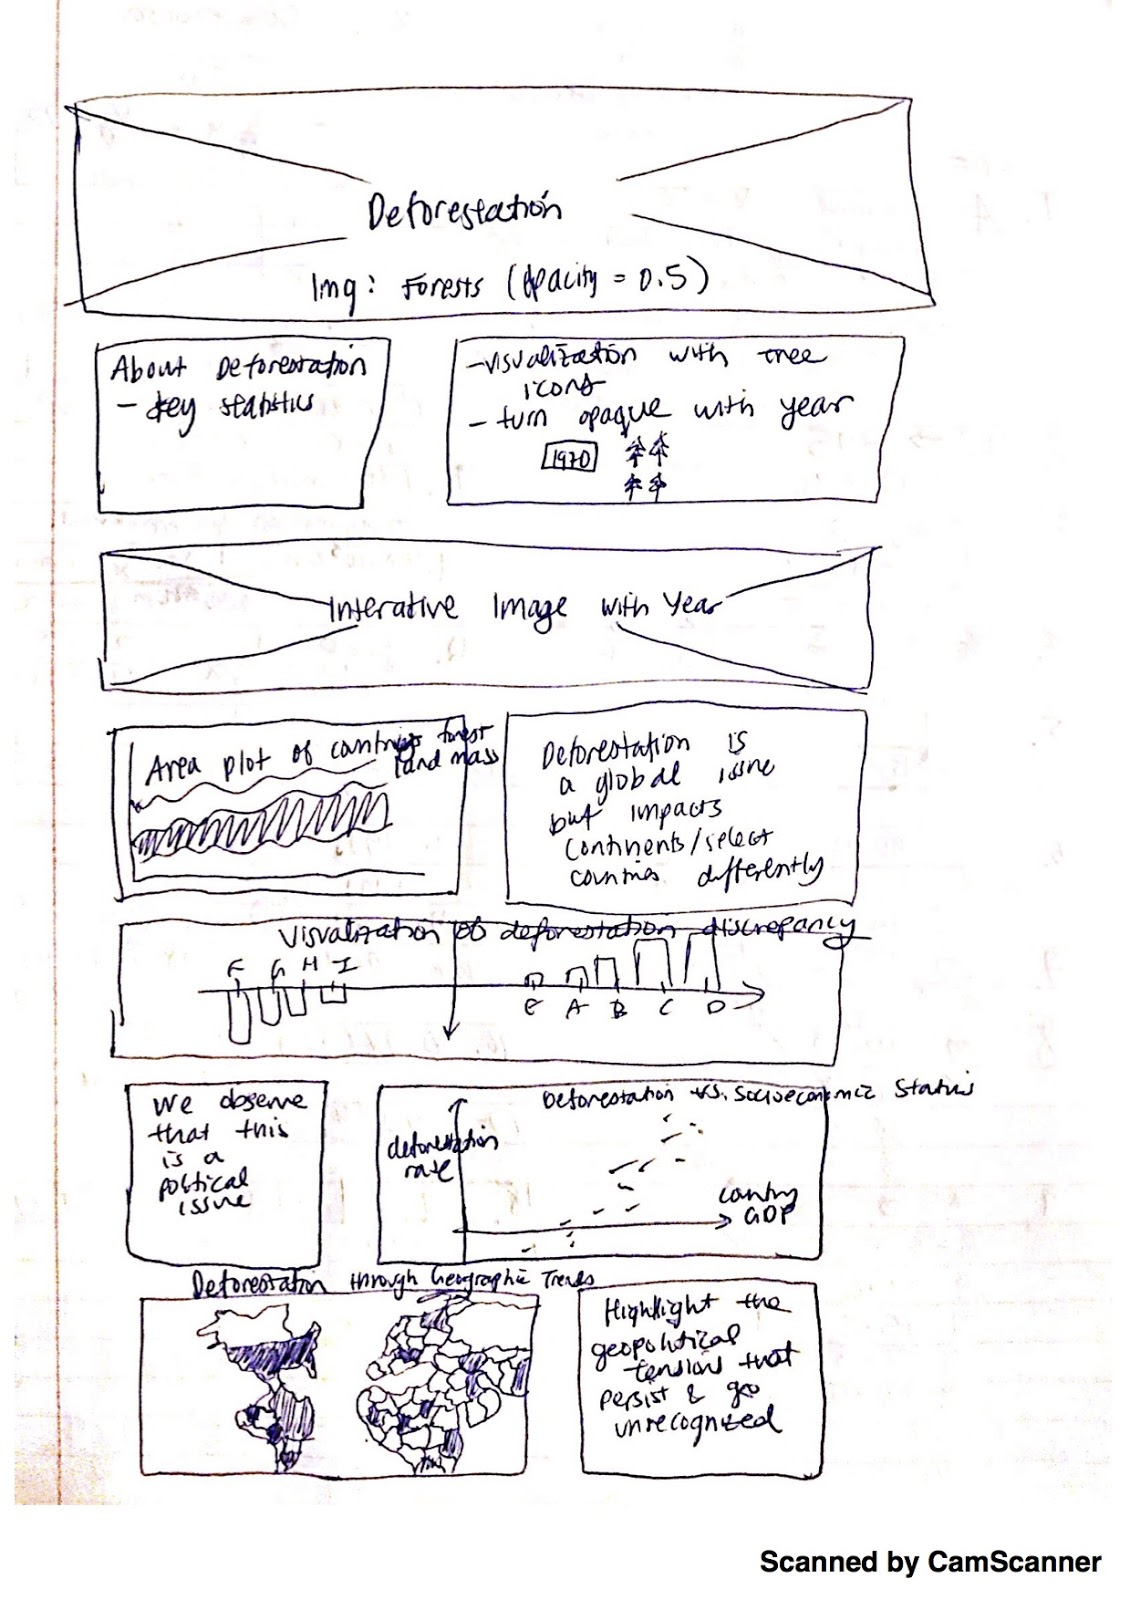 Deforestation
Img: Forests (Opacity = 0.5)
About Deforestation
- key statistics
- visualization with tree
icons
- turn opaque with year
1970
Interative Image with Year
Area plot of countries forest
land mass
Deforestation is
a global issue
but impacts
continents/select
countries differently
Visualization of deforestation discrepancy
F G H I
E A B C D
We observe
that this
is a
political
issue
Deforestation vs. Socioeconomic Status
deforestation
rate
country
GDP
Deforestation through Geographic Trends
Highlight the
geopolitical
tensions that
persist & go
unrecognized
Scanned by CamScanner